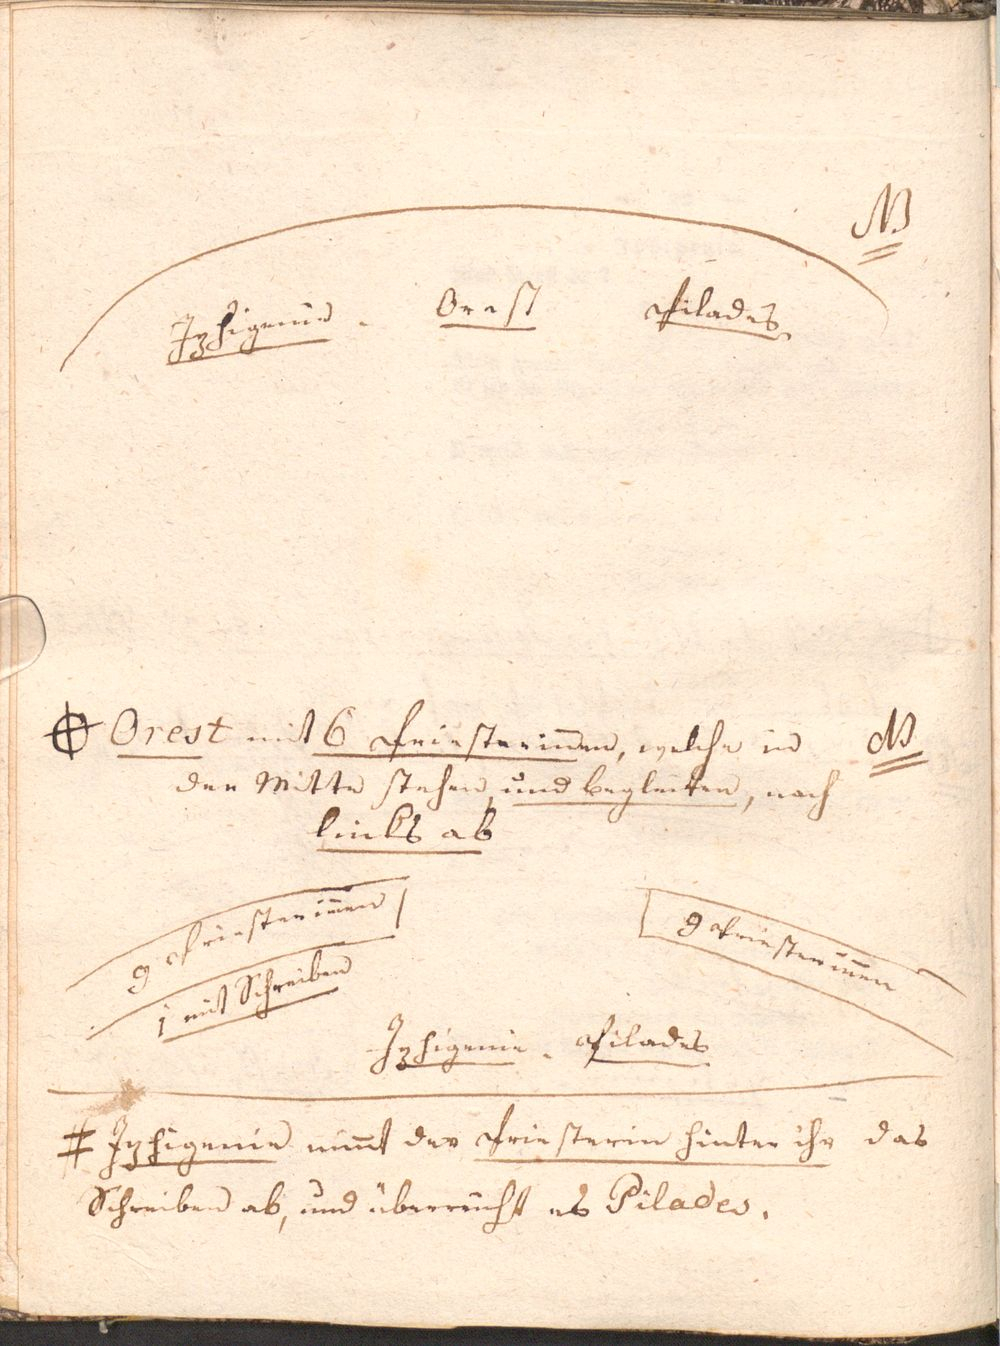 NB
Iphigenie. Orest Pilades
⊕ Orest mit 6 Priesterinnen, welche in NB
der Mitte stehen, und begleiten, nach
links ab
9 Priesterinnen 9 Priesterinnen
1 mit Schreiben
Iphigenie. Pilades
# Iphigenie nimmt der Priesterin hinter ihr das
Schreiben ab, und überreicht es Pilades.